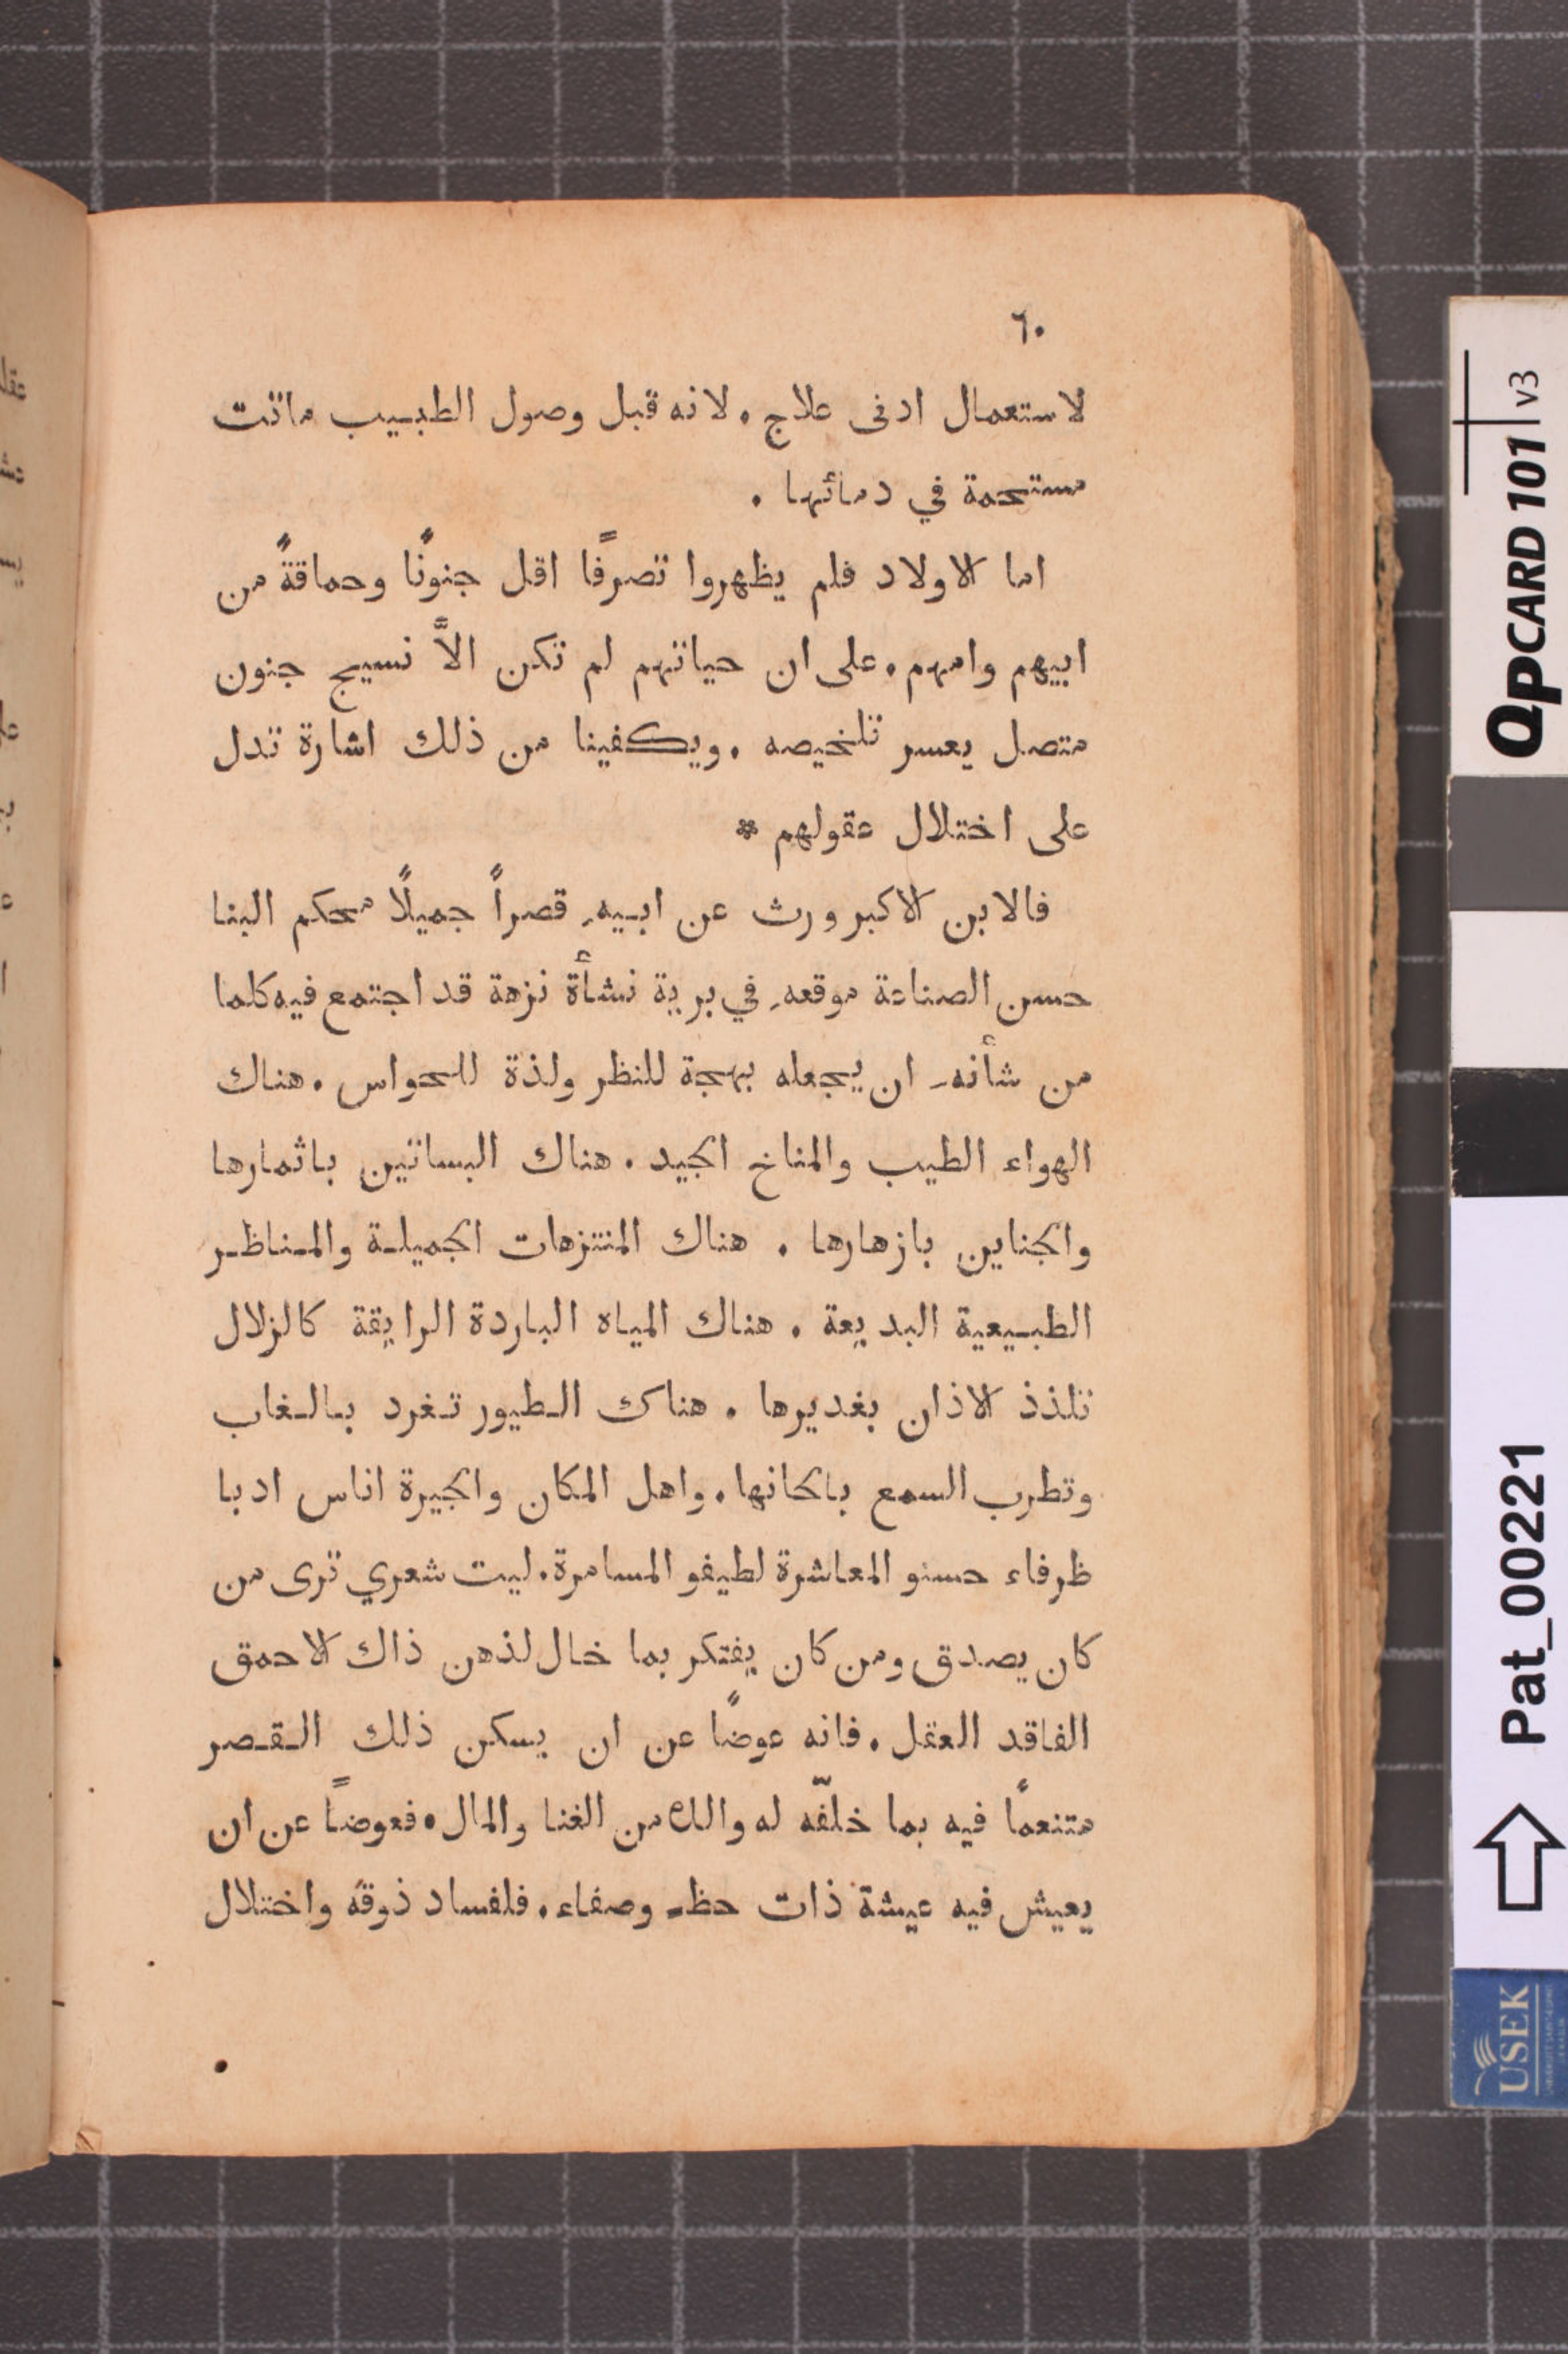 ٦٠
لاستعمال ادنى علاج. لانه قبل وصول الطبيب ماتت
مستحمة في دمائها.
اما الاولاد فلم يظهروا تصرفًا اقل جنونًا وحماقةً من
ابيهم وامهم. على ان حياتهم لم تكن الاَّ نسيج جنون
متصل يعسر تلخيصه. ويكفينا من ذلك اشارة تدل
على اختلال عقولهم *
فالابن الاكبر ورث عن ابيهِ قصراً جميلًا محكم البنا
حسن الصناعة موقعهِ في برية نشأة نزهة قد اجتمع فيه كلما
من شأنهِ ان يجعله بهجة للنظر ولذة للحواس. هناك
الهواء الطيب والمناخ الجيد. هناك البساتين باثمارها
والجناين بازهارها. هناك المنتزهات الجميلة والمناظر
الطبيعية البديعة. هناك المياه الباردة الرايقة كالزلال
تلذذ الاذان بغديرها. هناك الطيور تغرد بالغاب
وتطرب السمع بالحانها. واهل المكان والجيرة اناس ادبا
ظرفاء حسنو المعاشرة لطيفو المسامرة. ليت شعري ترى من
كان يصدق ومن كان يفتكر بما خال لذهن ذاك الاحمق
الفاقد العقل. فانه عوضًا عن ان يسكن ذلك القصر
متنعمًا فيه بما خلّفه له والده من الغنا والمال. فعوضاً عن ان
يعيش فيه عيشة ذات حظٍ وصفاء. فلفساد ذوقه واختلال
QPCARD 101 v3
Pat_00221
USEK